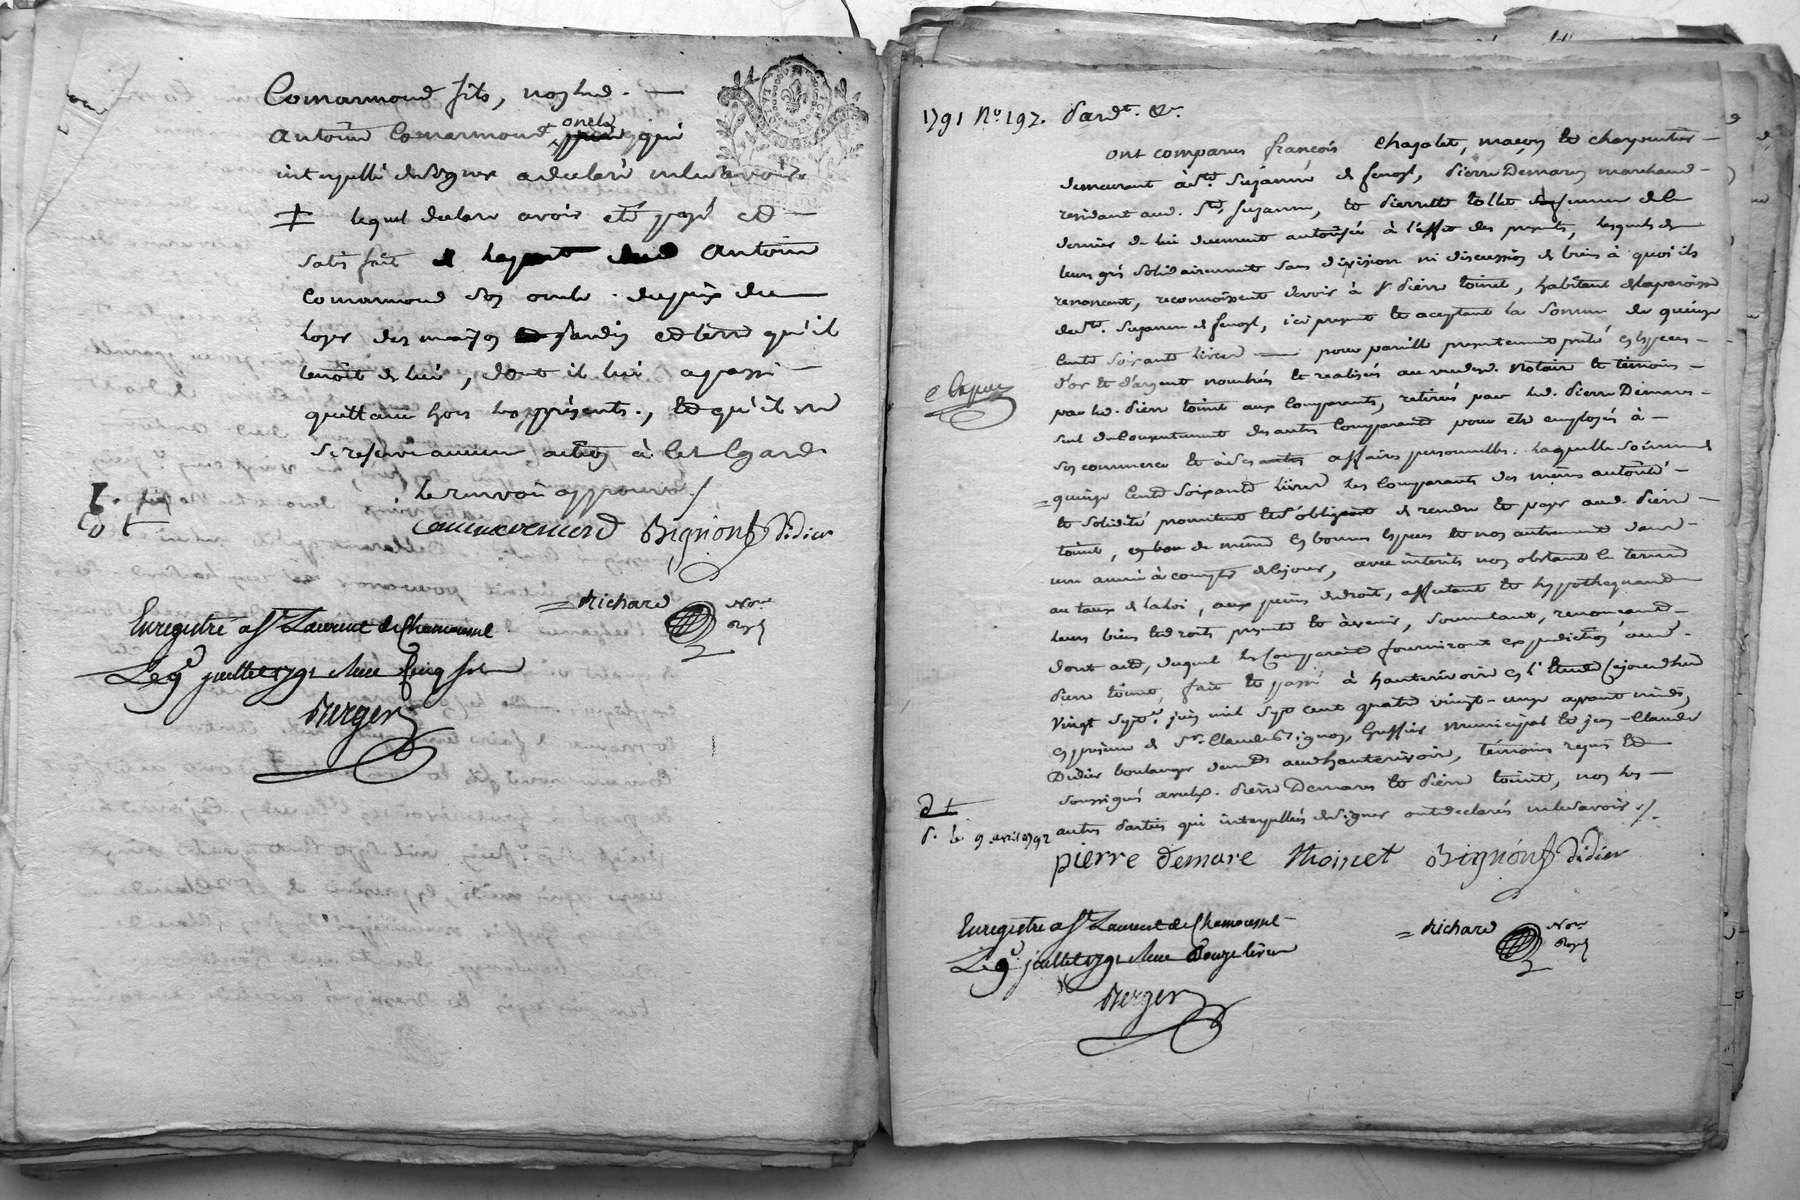 Comarmond fils, non led. —
Antoine Comarmond oncle qui
interpellé de signer a déclaré ne le savoir
‡ lequel declare avoir eté payé et —
satisfait Antoine
Comarmond son oncle du prix du
loyer des maison jardin et terre qu'il
tenoit de lui, dont il lui a passé —
quittance hors les présentes, et qu'il ne
se reserve aucune action à cet egard
le renvoi approuvé ./
Bignon Didier
= Richard Nore Royl
Enregistré a St Laurent de Chamousset
Le 9 juillet 1791 Reçu Cinq sols
Berger
1791 No 197. Pardt. &c.
ont comparus françois Chazalet, maçon et charpentier —
demeurant à Ste. Suzanne de fenoyl, pierre Demare marchand —
residant aud. Ste. Suzanne, et pierrette tollet femme de ce
dernier de lui duement autorisée à l'effet des presentes, lesquels de
leur gré solidairement sans division ni discussion de biens à quoi ils
renoncent, reconnoissent devoir à Sr pierre toinet, habitant de la paroisse
de Ste. Suzanne de fenoyl, ici present et aceptant la somme de quinze
cent soixante livres — pour pareille presentement prêté en especes —
d'or et d'argent nombrés et realisés au vu desd. notaire et temoins —
par led. pierre toinet aux Comparants, retirés par led. pierre Demare —
seul du Consentement des autres Comparants pour etre employés à —
son commerce et à des affaires personnelles. laquelle somme de
quinze Cents soixante livres les Comparants des mêmes autorité —
et solidité promettent et s'obligent de rendre et payer aud. pierre —
toinet, en bonnes especes et non autrement dans —
une année à compter de ce jour, avec interêts non obstant le terme
au taux de la loi, aux peines de droit, affectant et hypothequant
leurs biens et droits presents et à venir, soumettant, renonçant —
dont acte, duquel les Comparants fourniront expedition aud.
pierre toinet, fait et passé à hauterivoire en l'Etude Cejourd'hui
vingt sept. juin mil sept cent quatre vingt-onze avant midi,
en presence de Sr. Claude Bignon, Greffier municipal et jean-Claude
Didier boulanger demts. aud. hauterivoire, témoins requis et
soussignés avec led. pierre Demare et pierre toinet, non les —
autres parties qui interpellées de signer ont declarés ne le savoir ./.
le 9 avril 1792
pierre demare thoinet Bignon Didier
= Richard Nore Royl
Enregistré a St Laurent de Chamousset
Le 9 juillet 1791 Reçu Douze livres
Berger